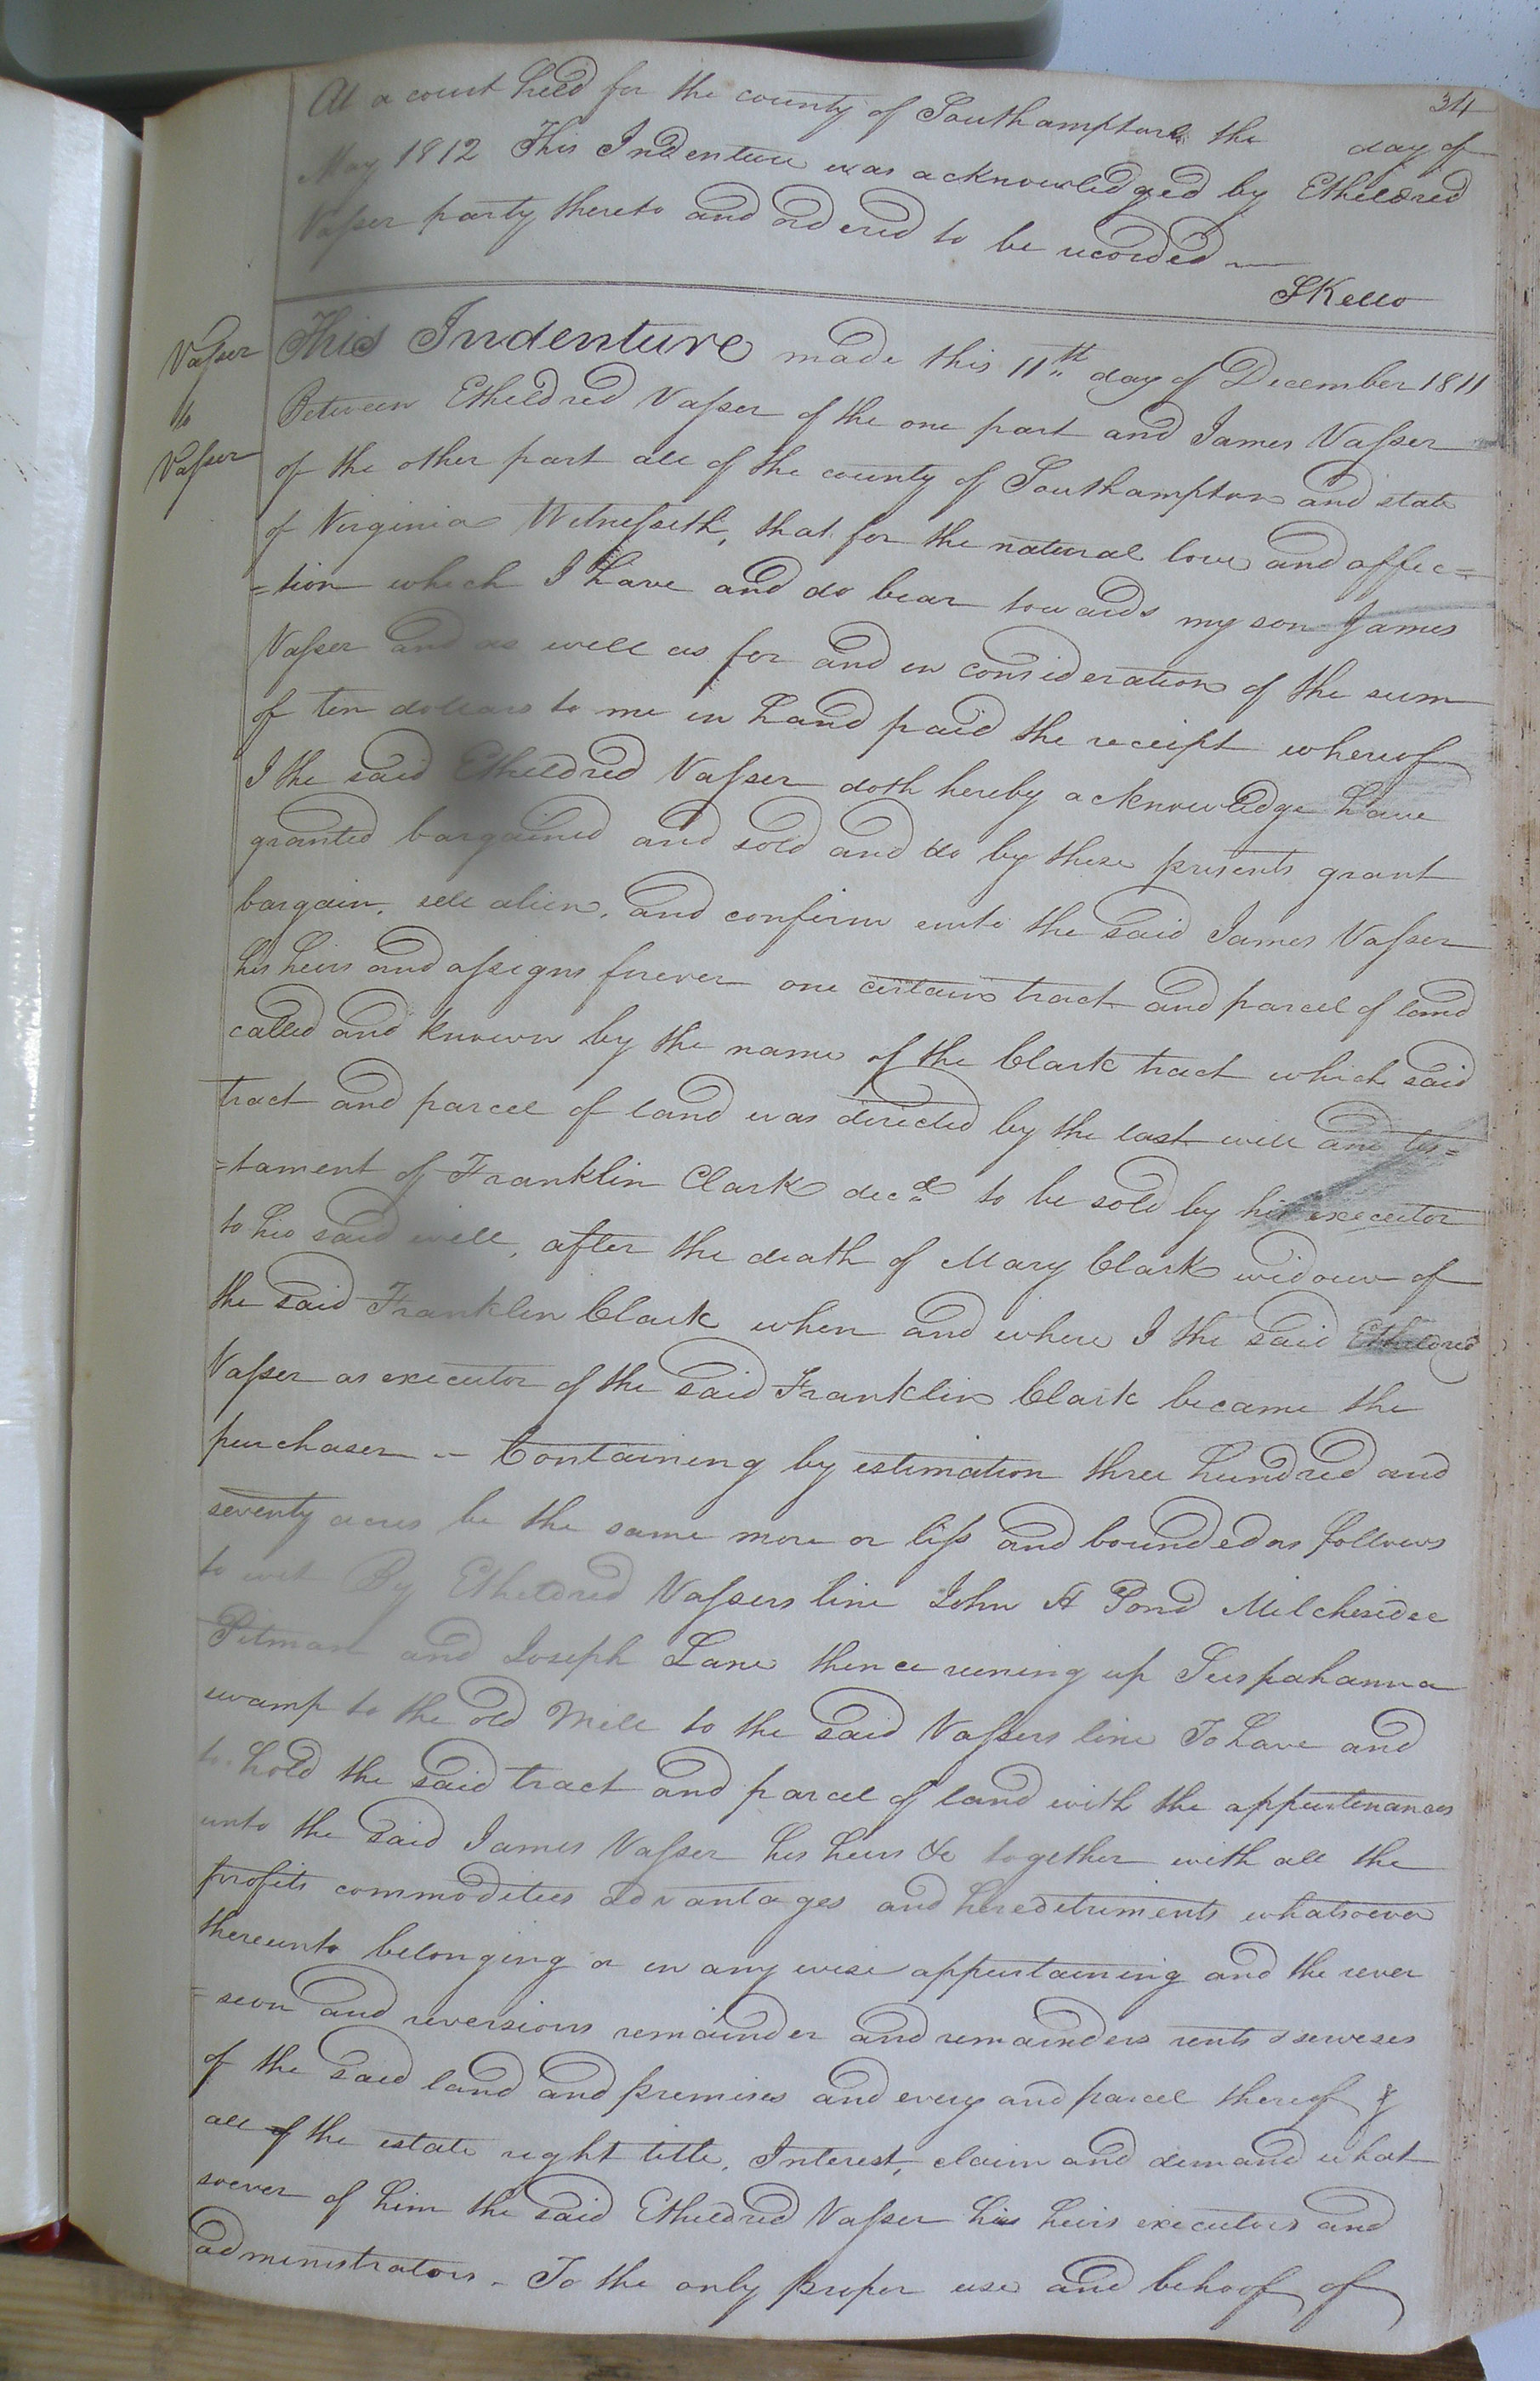 34
At a court held for the county of Southampton the day of
May 1812 This Indenture was acknowledged by Etheldred
Vaſser party thereto and ordered to be recorded —
SKello
Vaſser
to
Vaſser
This Indenture made this 11th day of December 1811
Between Etheldred Vaſser of the one part and James Vaſser
of the other part all of the county of Southampton and state
of Virginia Witneſseth, that for the natural love and affec=
=tion which I have and do bear towards my son James
Vaſser and as well as for and in consideration of the sum
of ten dollars to me in hand paid the receipt whereof
I the said Etheldred Vaſser doth hereby acknowledge have
granted bargained and sold and do by these presents grant
bargain, sell alien, and confirm unto the said James Vaſser
his heirs and aſsigns forever one certain tract and parcel of land
called and known by the name of the Clark tract which said
tract and parcel of land was directed by the last will and tes=
=tament of Franklin Clark decd to be sold by his executor
to his said will, after the death of Mary Clark widow of
the said Franklin Clark when and where I the said Etheldred
Vaſser as executor of the said Franklin Clark became the
purchaser — Containing by estimation three hundred and
seventy acres be the same more or leſs and bounded as follows
to wit By Etheldred Vaſsers line John A Pond Milchesidec
Pitman and Joseph Lane thence runing up Suspahanna
swamp to the old Mill to the said Vaſsers line To have and
to hold the said tract and parcel of land with the appurtenances
unto the said James Vaſser his heirs &c together with all the
profits commodities advantages and hereditriments whatsoever
thereunto belonging or in any wise appurtaining and the rever
=seon and reversions remainder and remainders rents & serveses
of the said land and premises and every and parcel thereof &
all of the estate right title, Interest, claim and demand what
soever of him the said Etheldred Vaſser his heirs executors and
administrators - To the only proper use and behoof of